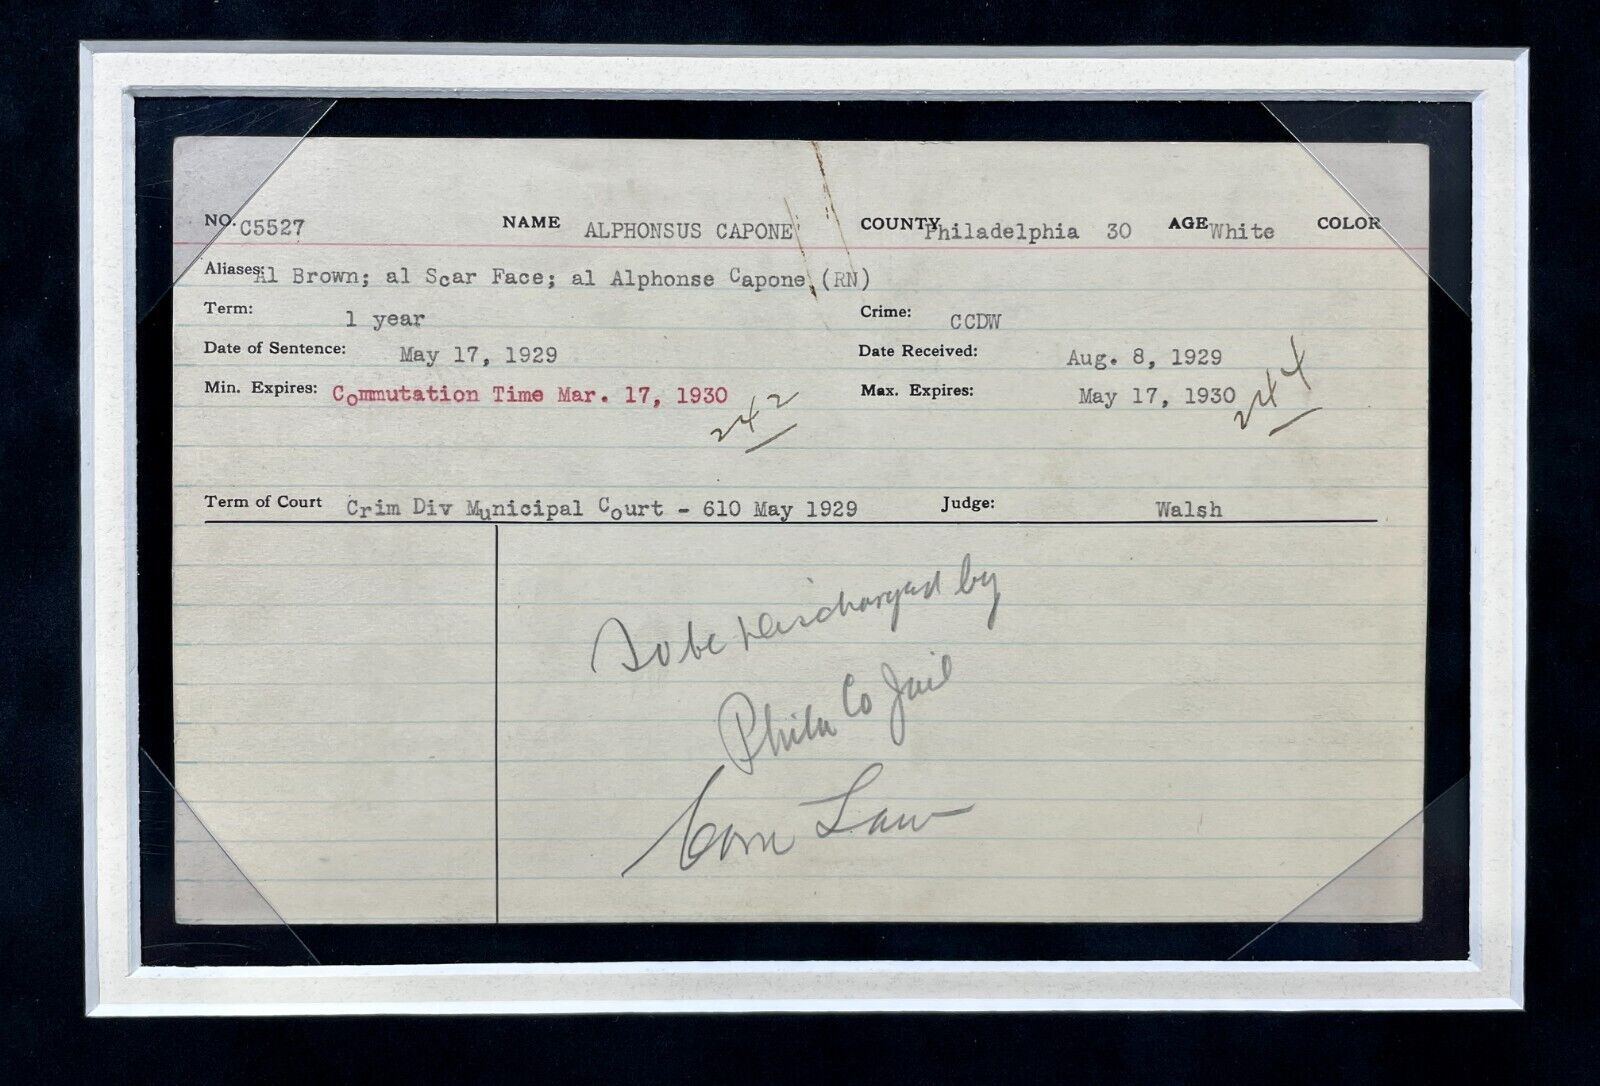 NO. C5527 NAME ALPHONSUS CAPONE COUNTY Philadelphia 30 AGE White COLOR
Aliases: Al Brown; al Scar Face; al Alphonse Capone (RN)
Term: 1 year Crime: CCDW
Date of Sentence: May 17, 1929 Date Received: Aug. 8, 1929
Min. Expires: Commutation Time Mar. 17, 1930 Max. Expires: May 17, 1930
242 244
Term of Court Crim Div Municipal Court - 610 May 1929 Judge: Walsh
To be discharged by
Phila Co Jail
Com Law